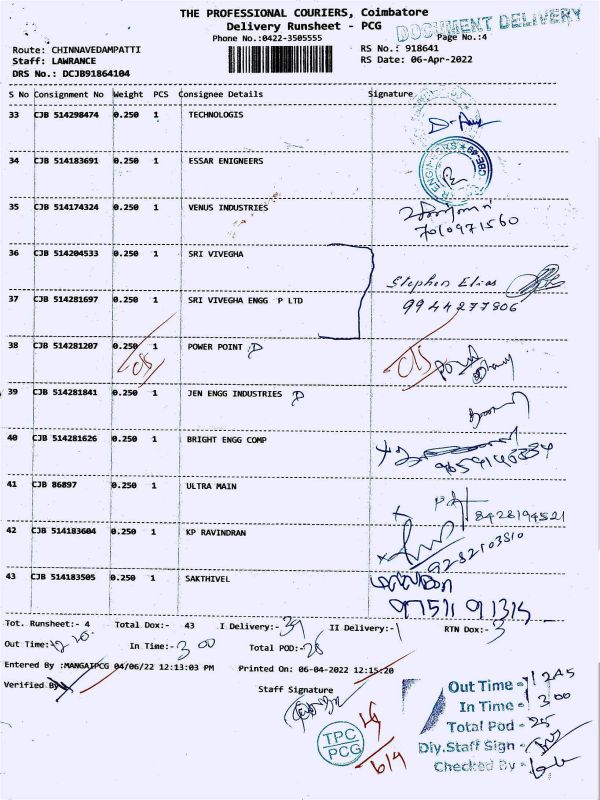 THE PROFESSIONAL COURIERS, Coimbatore
Delivery Runsheet - PCG
DOCUMENT DELIVERY
Phone No.:0422-3505555
Page No.:4
Route: CHINNAVEDAMPATTI
RS No.: 918641
Staff: LAWRANCE
RS Date: 06-Apr-2022
DRS No.: DCJB91864104
S No Consignment No Weight PCS Consignee Details Signature
33 CJB 514298474 0.250 1 TECHNOLOGIS
34 CJB 514183691 0.250 1 ESSAR ENIGNEERS
35 CJB 514174324 0.250 1 VENUS INDUSTRIES
7010971560
36 CJB 514204533 0.250 1 SRI VIVEGHA
Stephen Elias
37 CJB 514281697 0.250 1 SRI VIVEGHA ENGG P LTD
9944277806
38 CJB 514281207 0.250 1 POWER POINT
39 CJB 514281841 0.250 1 JEN ENGG INDUSTRIES
40 CJB 514281626 0.250 1 BRIGHT ENGG COMP
41 CJB 86897 0.250 1 ULTRA MAIN
8428194521
42 CJB 514183604 0.250 1 KP RAVINDRAN
9282103810
43 CJB 514183505 0.250 1 SAKTHIVEL
Tot. Runsheet:- 4 Total Dox:- 43 I Delivery:- 39 II Delivery:- 1 RTN Dox:- 3
Out Time:- In Time:- 3 00 Total POD:-
Entered By :MANGAIPCG 04/06/22 12:13:03 PM Printed On: 06-04-2022 12:15:20
Verified By
Staff Signature
TPC
PCG
6/4
Out Time - 1 2A5
In Time - 3 00
Total Pod - 25
Dly.Staff Sign -
Checked By -